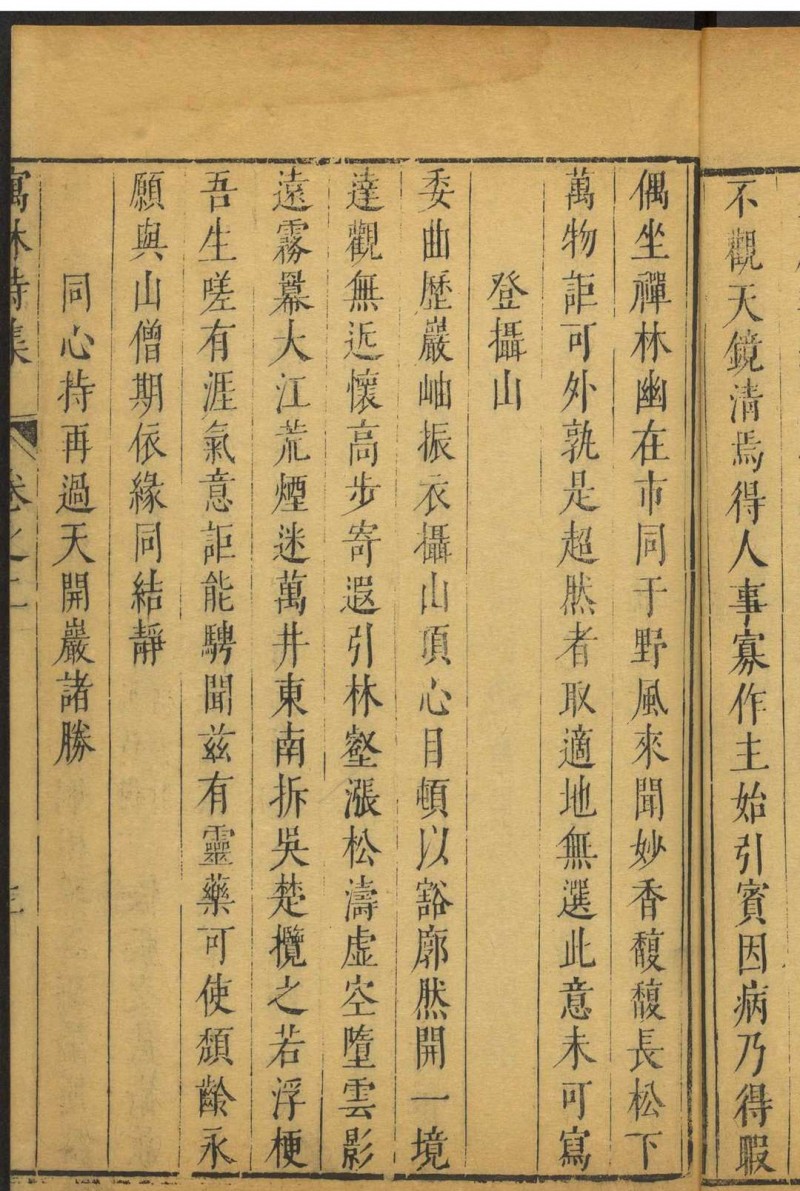 不觀天鏡清焉得人事寡作主始引賓因病乃得暇
偶坐禪林幽在市同于野風來聞妙香馥馥長松下
萬物詎可外孰是超然者取適地無選此意未可寫
登攝山
委曲歷巖岫振衣攝山頂心目頓以豁廓然開一境
達觀無近懷高步寄遐引林壑漲松濤虛空墮雲影
遠霧羃大江荒煙迷萬井東南拆吳楚攬之若浮梗
吾生嗟有涯氣意詎能騁聞茲有靈藥可使頹齡永
願與山僧期依緣同結靜
同心持再過天開巖諸勝
寓林詩集 卷之二